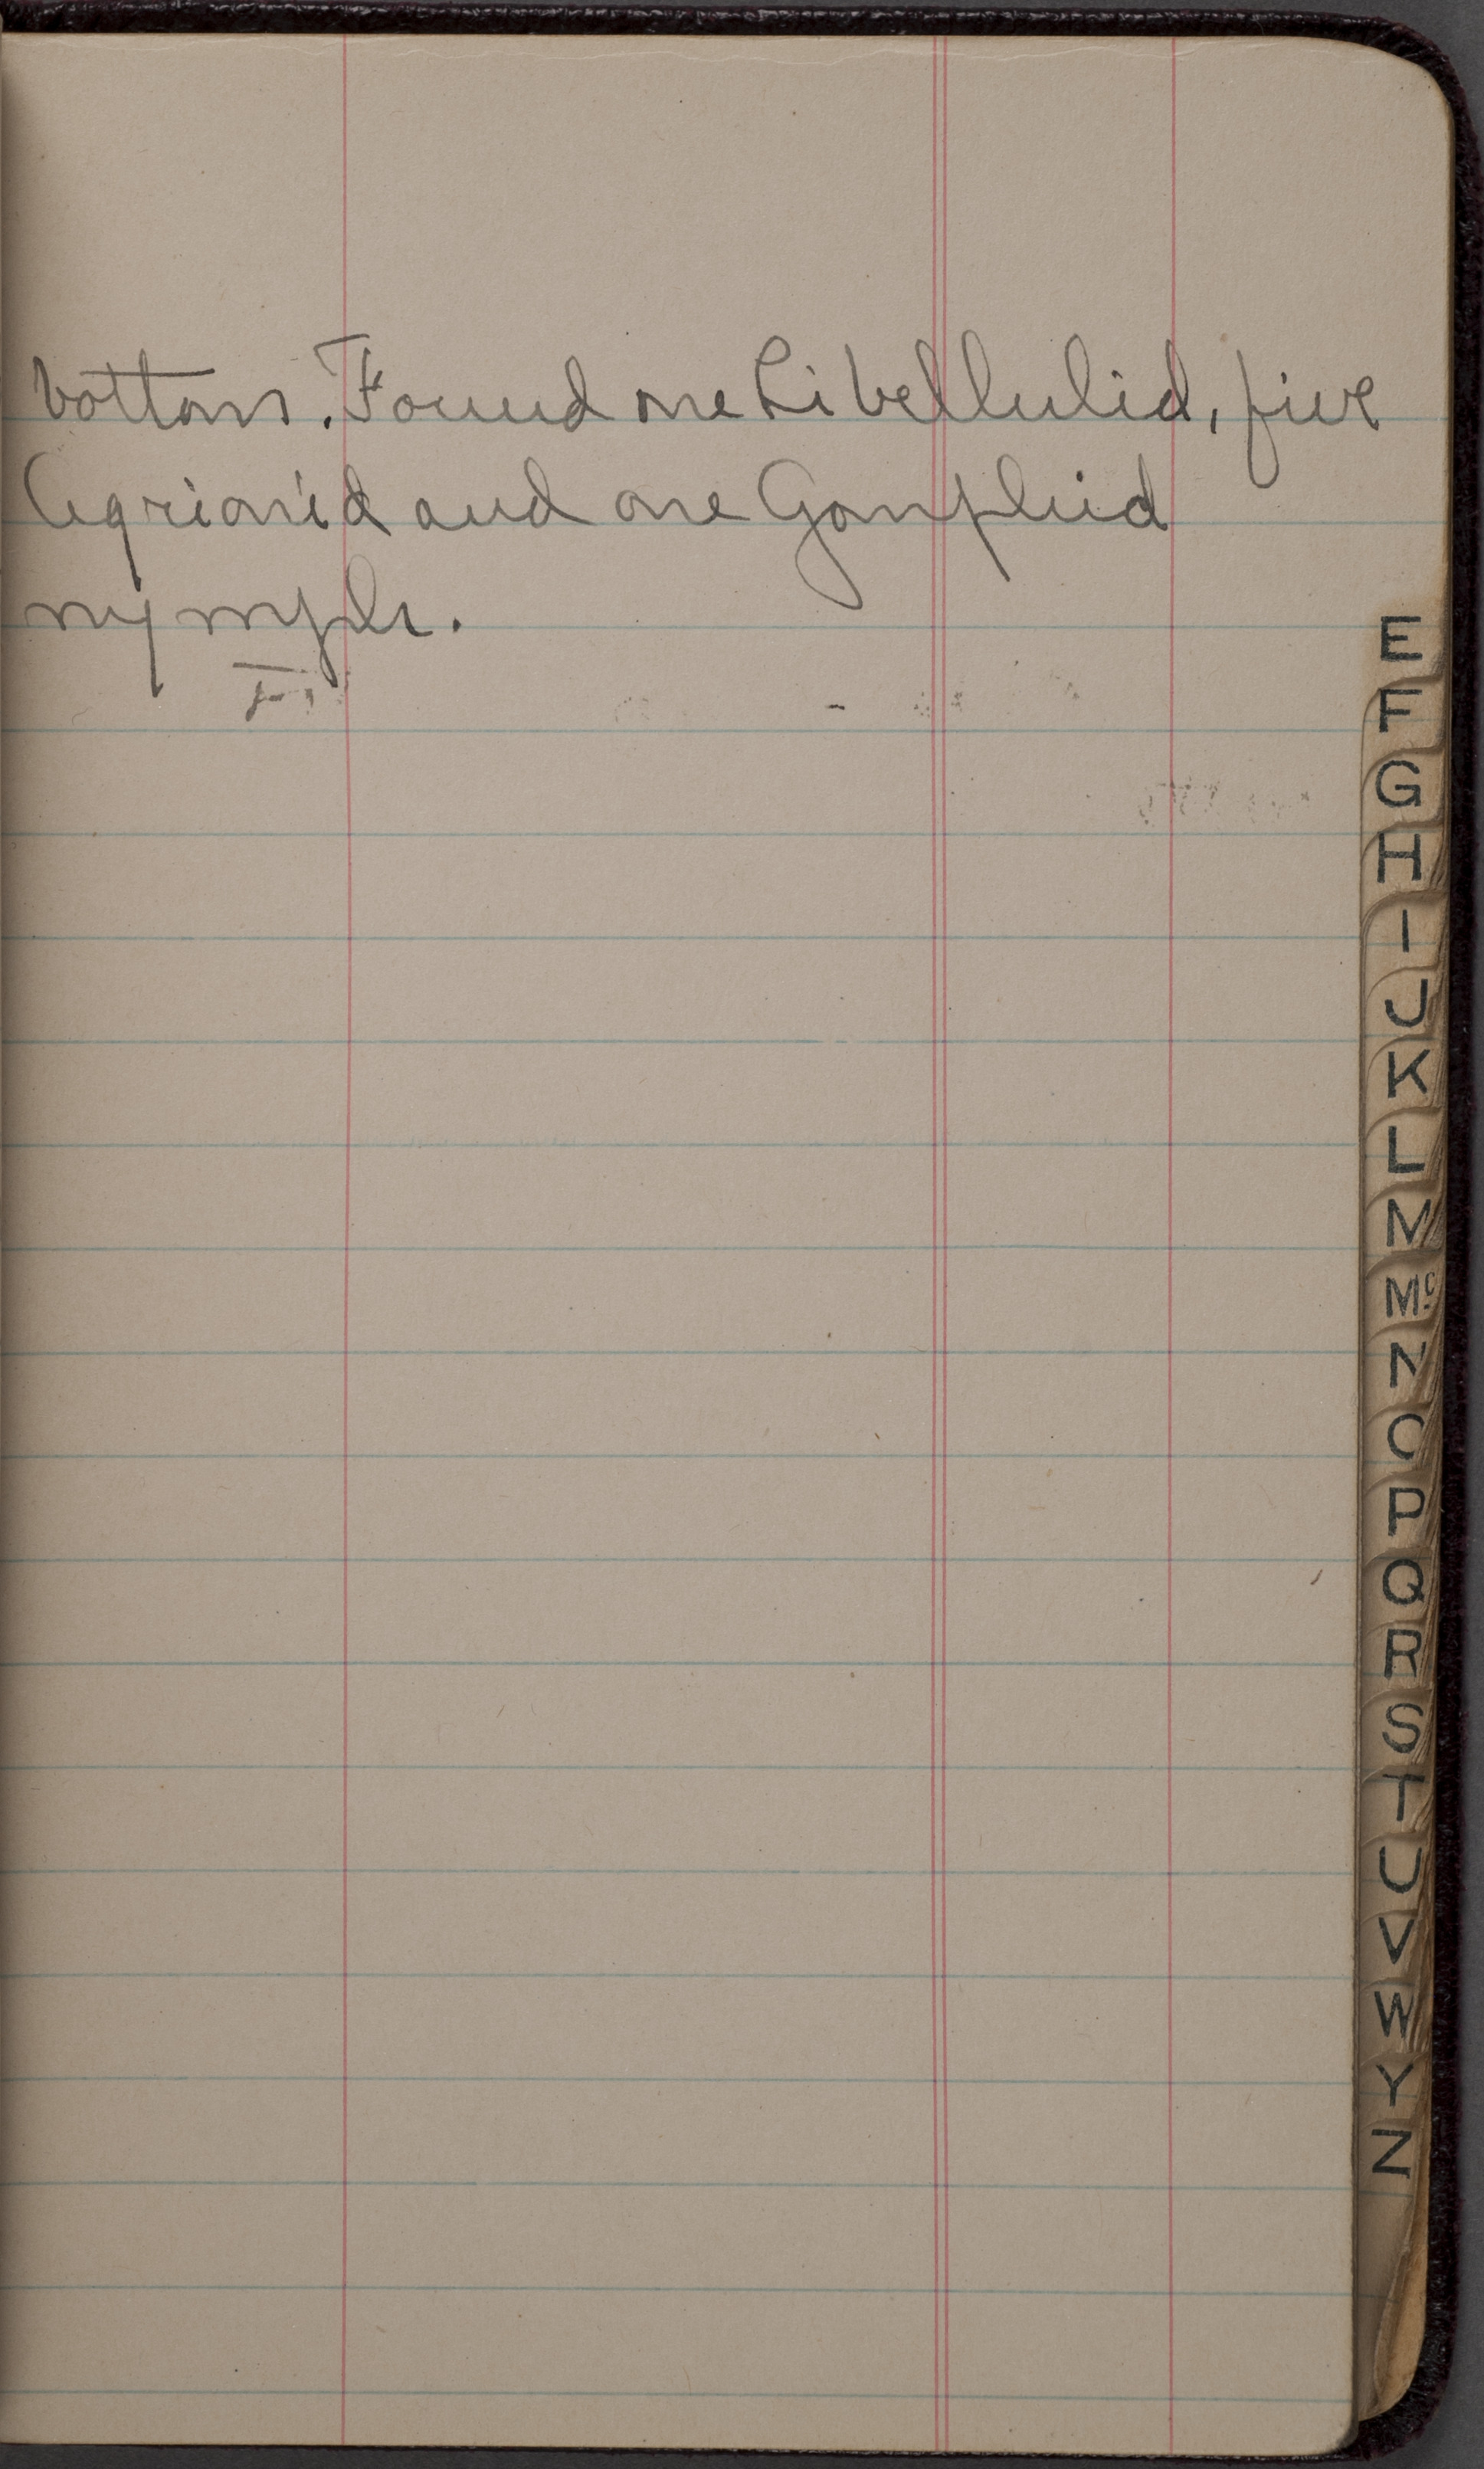 bottom. Found one Libellulid, five
Agrionid and one Gomphid
nymph.
E
F
G
H
I
J
K
L
M
Mc
N
O
P
Q
R
S
T
U
V
W
Y
Z